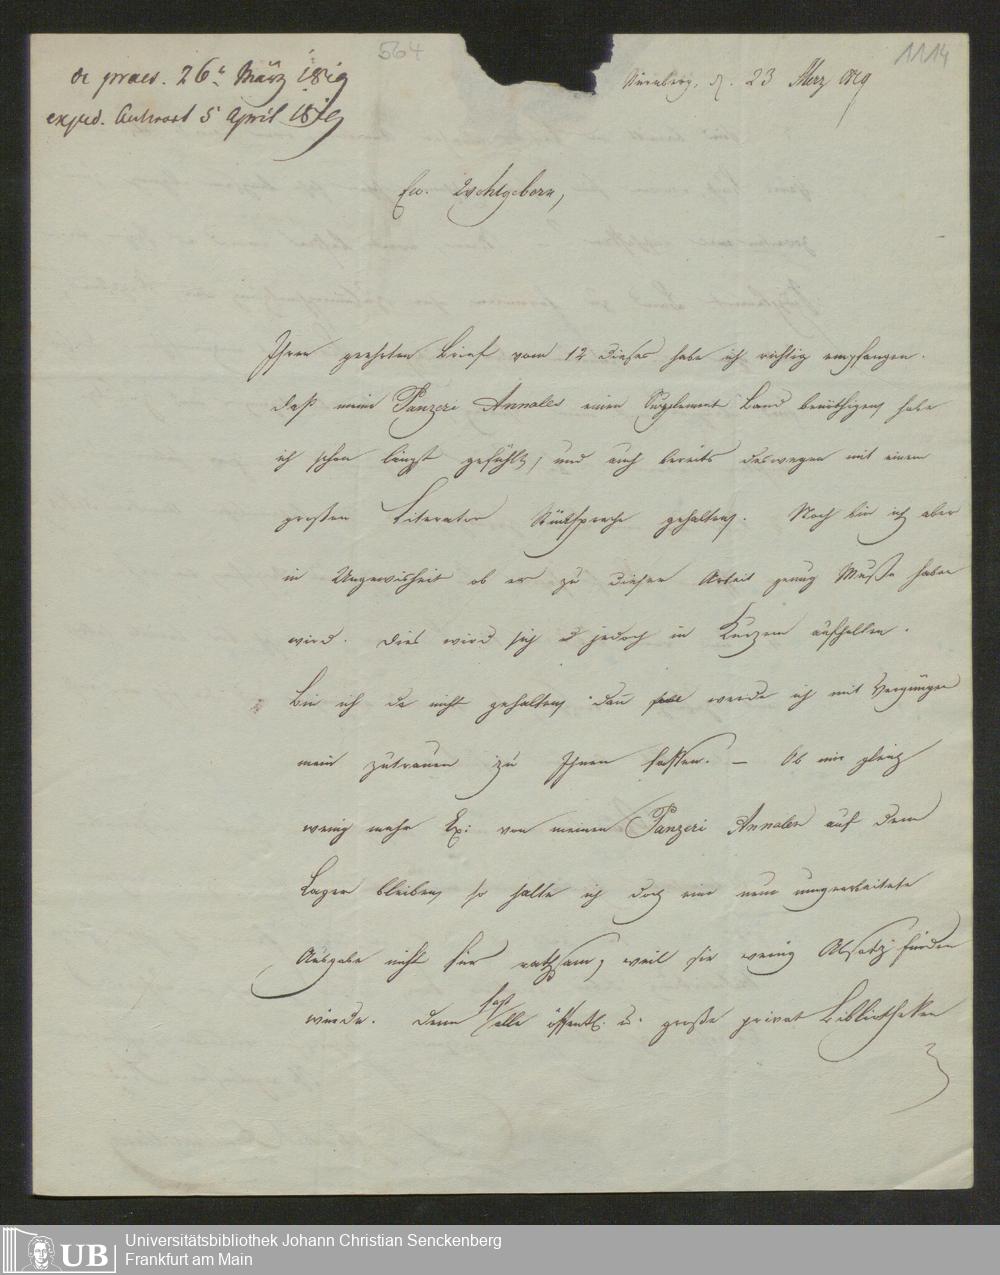 564
1114
de praes. 26t. März 1819
exped. Antwort 5 April 1819
Nürnberg, d. 23 Merz 1819
Ew. Wohlgeborn,
Ihren geehrten Brief vom 12 dieses habe ich richtig empfangen.
daß meine Panzeri Annales einen Supplement Band benöthigen habe
ich schon längst gefühlt, und auch bereits deswegen mit einem
großen Literator Rücksprache gehalten. Noch bin ich aber
in Ungewisheit ob er zu dieser Arbeit genug Muße haben
wird. dies wird sich jedoch in Kurzem aufhellen.
Bin ich da nicht gehalten dan werde ich mit Vergnügen
mein zutrauen zu Ihnen fassen. – Ob mir gleich
wenig mehr Ex: von meinen Panzeri Annalen auf dem
Lager bleiben, so halte ich doch eine neue umgearbeitete
Ausgabe nicht für rathsam, weil sie wenig Absatz finden
würde. denn fast alle öffentl. u. große privat Bibliotheken
UB
Universitätsbibliothek Johann Christian Senckenberg
Frankfurt am Main